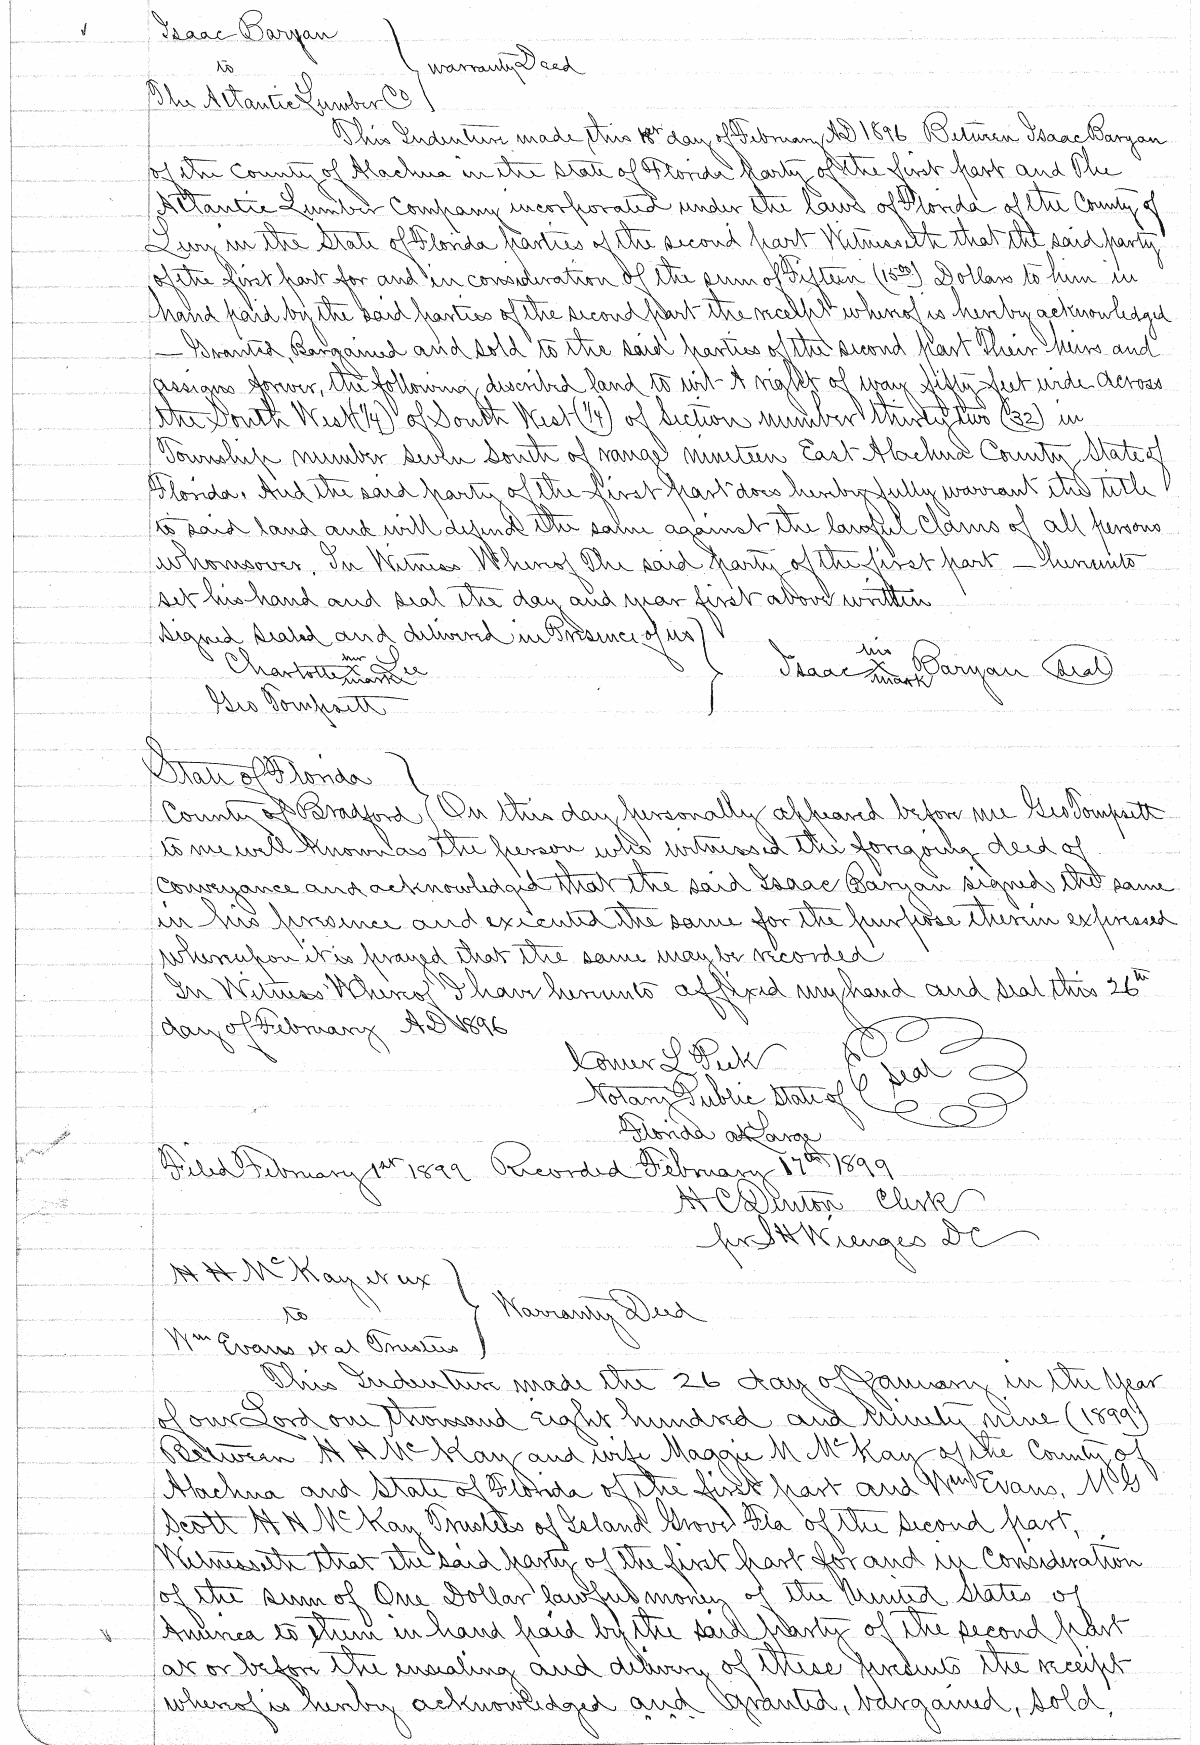 Isaac Baryan
to
Warranty Deed
The Atlantic Lumber Co
This Indenture made this 18th day of February AD 1896 Between Isaac Baryan
of the County of Alachua in the State of Florida party of the first part and The
Atlantic Lumber Company incorporated under the laws of Florida of the County of
Levy in the State of Florida parties of the second part Witnesseth that the said party
of the first part for and in consideration of the sum of Fifteen (15 00) Dollars to him in
hand paid by the said parties of the second part the receipt whereof is hereby acknowledged
— Granted, Bargained and sold to the said parties of the second part Their heirs and
assigns forever, the following described land to wit A right of way fifty feet wide across
the South West (1/4) of South West (1/4) of Section number thirty two (32) in
Township number seven South of range nineteen East Alachua County State of
Florida. And the said party of the first part does hereby fully warrant the title
to said land and will defend the same against the lawful clams of all persons
whomsover. In Witness Whereof The said party of the first part — hereunto
set his hand and seal the day and year first above written
Signed Sealed and delivered in Presence of us
Charlotte her x mark Lee
Isaac his x mark Baryan Seal
Geo Tompsett
State of Florida
County of Bradford On this day personally appeared before me Geo Tompsett
to me well known as the person who witnessed the foregoing deed of
conveyance and acknowledged that the said Isaac Baryan signed the same
in his presence and executed the same for the purpose therein expressed
whereupon it is prayed that the same may be recorded
In Witness Whereof I have hereunto affixed my hand and seal this 26th
day of February AD 1896
Comer L Peek
Notary Public State of Seal
Florida at Large
Filed February 1st 1899 Recorded February 17th 1899
H C Denton Clerk
pr S H Wienges DC
H H McKay et ux
to
Warranty Deed
Wm Evans et al Trustees
This Indenture made the 26 day of January in the Year
of our Lord one thousand Eight hundred and Ninety nine (1899)
Between H H McKay and wife Maggie M McKay of the County of
Alachua and State of Florida of the first part and Wm Evans, M G
Scott H H McKay Trustees of Island Grove Fla of the second part,
Witnesseth that the said party of the first part for and in Consideration
of the sum of One Dollar lawful money of the United States of
America to them in hand paid by the said party of the second part
at or before the ensealing and delivery of these presents the receipt
whereof is hereby acknowledged and Granted, bargained, sold,